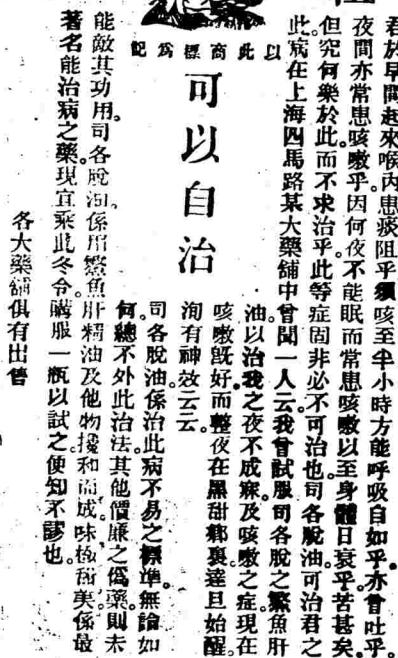 君於早間起來喉內患痰阻乎須咳至半小時方能呼吸自如乎亦曾吐乎。
夜間亦常患咳嗽乎。因何夜不能眠而常患咳嗽以至身體日衰乎。苦甚矣。
但究何樂於此而不求治乎。此等症固非必不可治也。司各脫油可治君之
此病。在上海四馬路某大藥舖中曾聞一人云我曾試服司各脫之鱉魚肝
以此商標爲記
可以自治
油以治我之夜不成寐及咳嗽之症。現在
咳嗽旣好而整夜在黑甜鄉裏達旦始醒。
洵有神效云云。
司各脫油係治此病不易之標準。無論如
何總不外此治法。其他價廉之僞藥則未
能敵其功用。司各脫油係用鱉魚肝精油及他物攙和而成。味極甜美係最
著名能治病之藥。現宜乘此冬令購服一瓶以試之。便知不謬也。
各大藥舖俱有出售